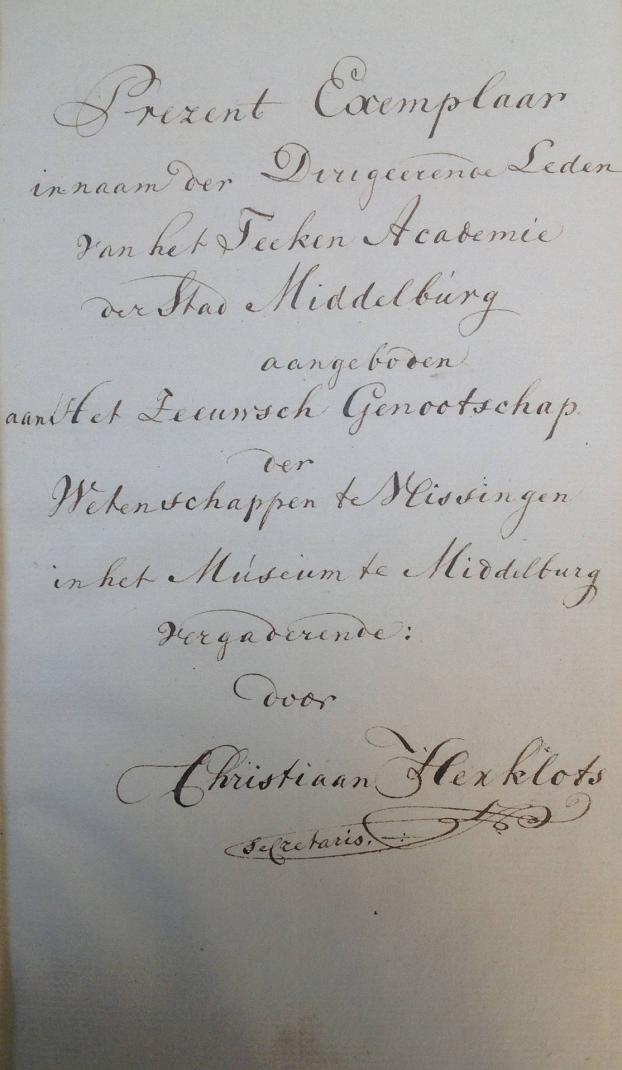 Prezent Exemplaar
in naam der Dirigeerende Leden
van het Teeken Academie
der Stad Middelbúrg
aangeboden
aan Het Zeeuwsch Genootschap.
der
Wetenschappen te Vlissingen
in het Múseum te Middelburg
vergaderende:
door
Christiaan Herklots
secretaris.